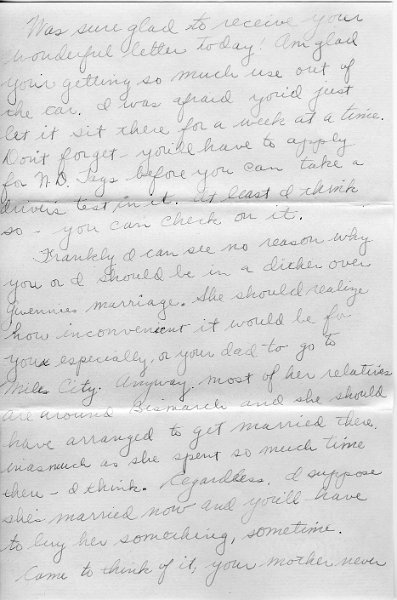 Was sure glad to receive your
wonderful letter today! Am glad
your getting so much use out of
the car. I was afraid you'd just
let it sit there for a week at a time.
Don't forget - you'd have to apply
for N.D. Tags before you can take a
drivers test in it. At least I think
so - you can check on it.
Frankly I can see no reason why
you or I should be in a dither over
Gwennies marriage. She should realize
how inconvenient it would be for
you especially, or your dad to go to
Miles City. Anyway, most of her relatives
are around Bismarck and she should
have arranged to get married there,
inasmuch as she spent so much time
there - I think. Regardless, I suppose
she's married now and you'll have
to buy her something, sometime.
Come to think of it, your mother never